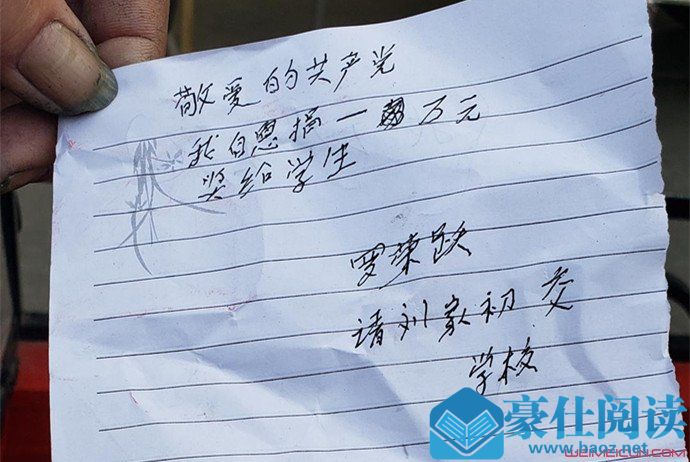 敬爱的共产党
我自愿捐一万元
奖给学生
罗荣跃
请刘家初交
学校
豪仕阅读
www.baoz.net
WEIMEICUN.COM